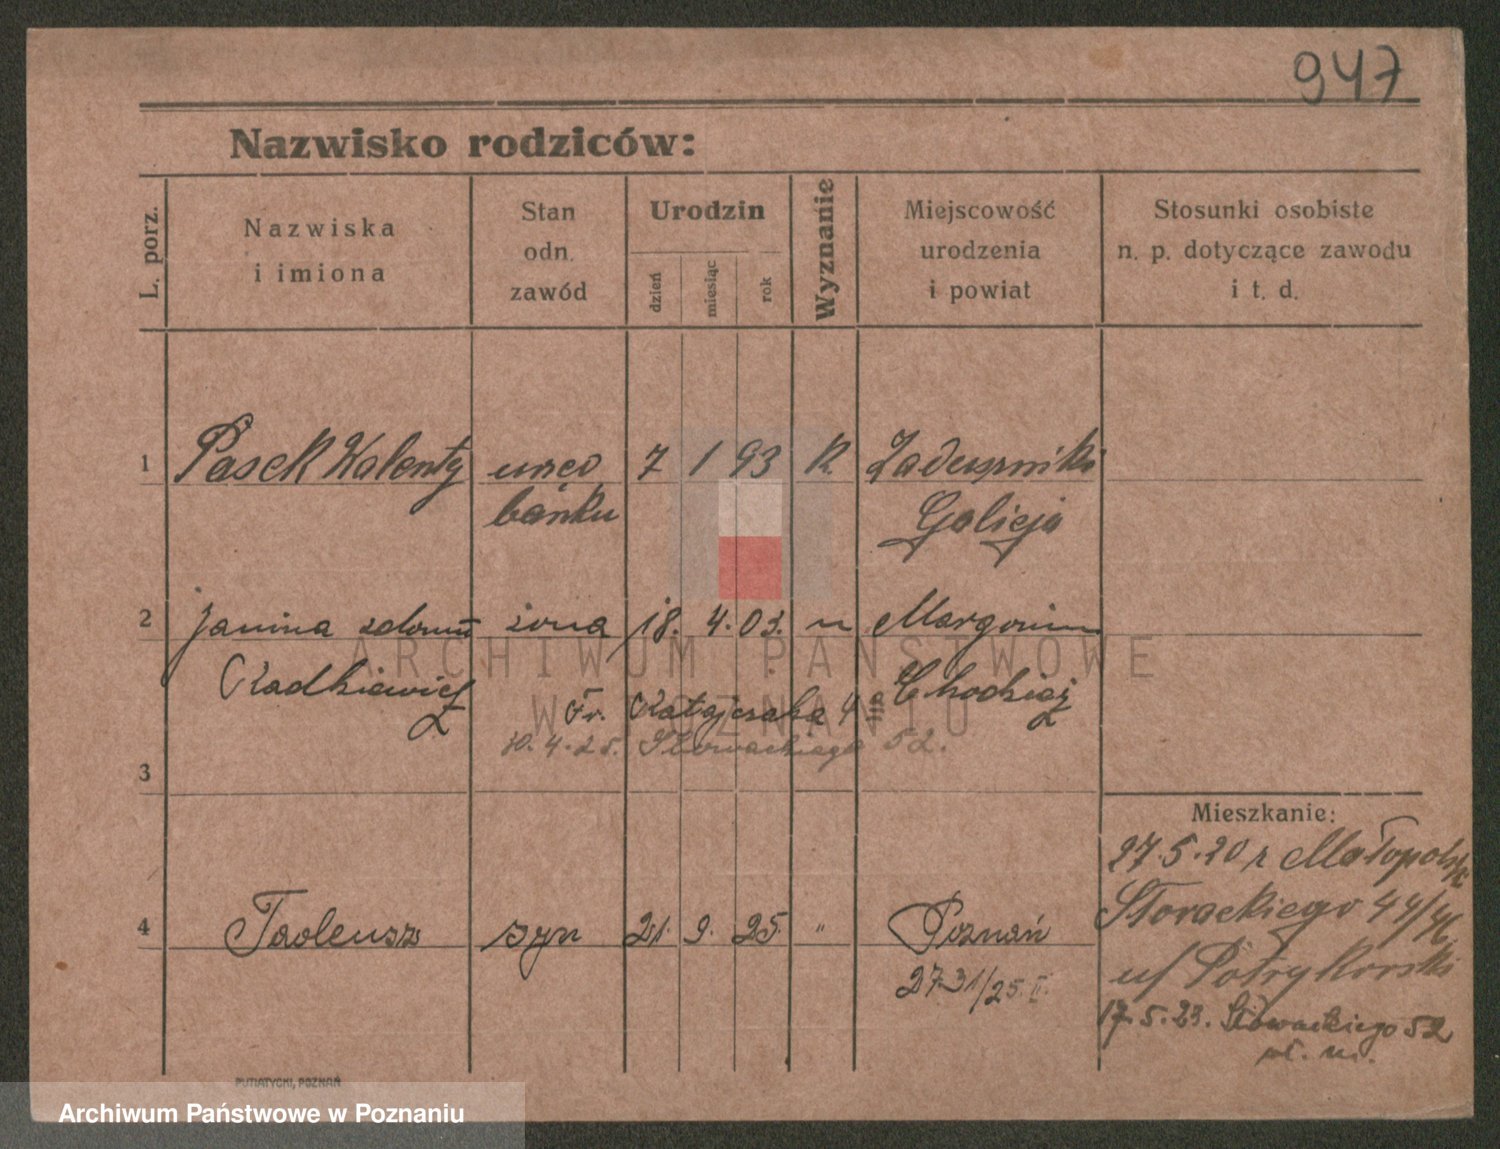 947
Nazwisko rodziców:
L. porz.
Nazwiska
i imiona
Stan
odn.
zawód
Urodzin
dzień
miesiąc
rok
Wyznanie
Miejscowość
urodzenia
i powiat
Stosunki osobiste
n. p. dotyczące zawodu
i t. d.
1 Pasek Walenty urzęd 7 1 93 R. Zaduszniki
banku Galicja
2 Janina zdomu żona 18. 4. 03. " Margonin
Radkiewicz Chodzież
Fr. Ratajczaka 4
30. 4. 25. Słowackiego 52.
3
Mieszkanie:
27.5.20 z Małopolski
Słowackiego 44/46
4 Tadeusz syn 21. 9. 25. " Poznań
u/ Potrykowski
2731/25. II.
17.5.23. Słowackiego 52
wł. m.
PUTIATYCKI, POZNAŃ
ARCHIWUM PAŃSTWOWE
W POZNANIU
Archiwum Państwowe w Poznaniu